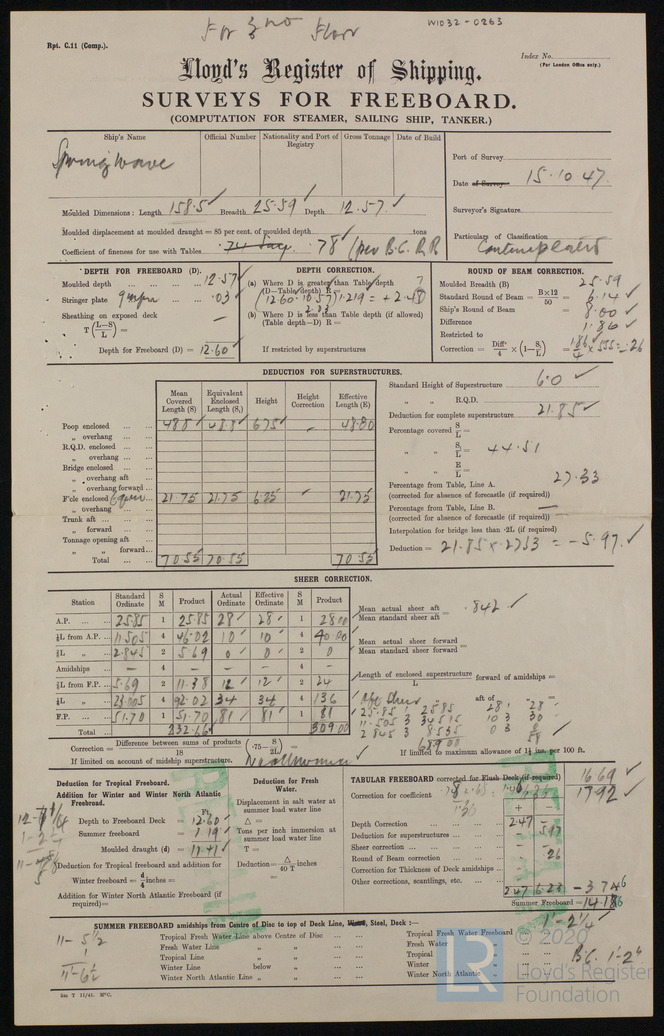 W1032-0263
Rpt. C.11 (Comp.).
Index No.
(For London Office only.)
Lloyd's Register of Shipping.
SURVEYS FOR FREEBOARD.
(COMPUTATION FOR STEAMER, SAILING SHIP, TANKER.)
Ship's Name Official Number Nationality and Port of Registry Gross Tonnage Date of Build
Spring wave
Port of Survey
Date of Survey 15.10.47.
Surveyor's Signature
Particulars of Classification Contemplated
Moulded Dimensions: Length 158.5 Breadth 25.59 Depth 12.57
Moulded displacement at moulded draught = 85 per cent. of moulded depth tons
Coefficient of fineness for use with Tables .78 (per B.C. R.R
DEPTH FOR FREEBOARD (D).
Moulded depth 12.57
Stringer plate .03
Sheathing on exposed deck —
T (L−S/L) =
Depth for Freeboard (D) = 12.60
DEPTH CORRECTION.
(a) Where D is greater than Table depth
(D—Table depth) R =
(12.60-10.57) 1.219 = + 2.48
2.03
(b) Where D is less than Table depth (if allowed)
(Table depth—D) R =
If restricted by superstructures
ROUND OF BEAM CORRECTION.
Moulded Breadth (B) 25.59
Standard Round of Beam = B×12/50 = 6.14
Ship's Round of Beam = 8.00
Difference 1.86
Restricted to
Correction = Diff/4 × (1−S/L) = 1.86/4 × .555 = -.26
DEDUCTION FOR SUPERSTRUCTURES.
Mean Covered Length (S) Equivalent Enclosed Length (S₁) Height Height Correction Effective Length (E)
Poop enclosed 48.8 48.8 6.75 - 48.80
„ overhang
R.Q.D. enclosed
„ overhang
Bridge enclosed
„ overhang aft
„ overhang forward
F'cle enclosed 21.75 21.75 6.25 21.75
„ overhang
Trunk aft
„ forward
Tonnage opening aft
„ „ forward
Total 70.55 70.55 70.55
Standard Height of Superstructure 6.0
„ „ R.Q.D.
Deduction for complete superstructure 21.85
Percentage covered S/L =
„ „ S₁/L = 44.51
„ „ E/L =
Percentage from Table, Line A. 27.33
(corrected for absence of forecastle (if required))
Percentage from Table, Line B. —
(corrected for absence of forecastle (if required))
Interpolation for bridge less than ·2L (if required)
Deduction = 21.85 × .2733 = - 5.97.
SHEER CORRECTION.
Station Standard Ordinate S M Product Actual Ordinate Effective Ordinate S M Product
A.P. 25.85 1 25.85 28 28 1 28.00
⅙L from A.P. 11.505 4 46.02 10 10 4 40.00
⅓L „ 2.845 2 5.69 0 0 2 0
Amidships — 4 — — — 4 —
⅓L from F.P. 5.69 2 11.38 12 12 2 24
⅙L „ 23.005 4 92.02 34 34 4 136
F.P. 51.70 1 51.70 81 81 1 81
Total 232.66 309.00
Mean actual sheer aft / Mean standard sheer aft = .842
Mean actual sheer forward / Mean standard sheer forward =
Length of enclosed superstructure / L forward of amidships =
aft of „ =
Aft Sheer
25.85 1 25.85 28 1 28
11.505 3 34.515 10 3 30
2.845 3 8.535 0 3 0
68.900 58
Correction = Difference between sums of products / 18 (·75−S/2L) =
If limited on account of midship superstructure.
If limited to maximum allowance of 1½ ins. per 100 ft.
No allowance
Deduction for Tropical Freeboard.
Addition for Winter and Winter North Atlantic Freeboard.
Ft.
Depth to Freeboard Deck = 12.60
Summer freeboard = 1.19
Moulded draught (d) = 11.41
Deduction for Tropical freeboard and addition for
Winter freeboard = d/4 inches =
Addition for Winter North Atlantic Freeboard (if required) =
Deduction for Fresh Water.
Displacement in salt water at summer load water line
Δ =
Tons per inch immersion at summer load water line
T =
Deduction = Δ/40 T inches
=
TABULAR FREEBOARD corrected for Flush Deck (if required) 16.69
Correction for coefficient 17.92
+ −
Depth Correction 2.47 —
Deduction for superstructures — 5.97
Sheer correction — —
Round of Beam correction .26
Correction for Thickness of Deck amidships
Other corrections, scantlings, etc.
2.47 6.23 -3.76
Summer Freeboard = 14.16
1'-2¼"
SUMMER FREEBOARD amidships from Centre of Disc to top of Deck Line, Wood, Steel, Deck :—
11- 5½
1
11-6½
Tropical Fresh Water Line above Centre of Disc
Fresh Water Line „ „
Tropical Line „ „
Winter Line below „
Winter North Atlantic Line „ „
Tropical Fresh Water Freeboard
Fresh Water „
Tropical „
Winter „
Winter North Atlantic „
B.C. 1'-2"
LR
© 2020
Lloyd's Register
Foundation